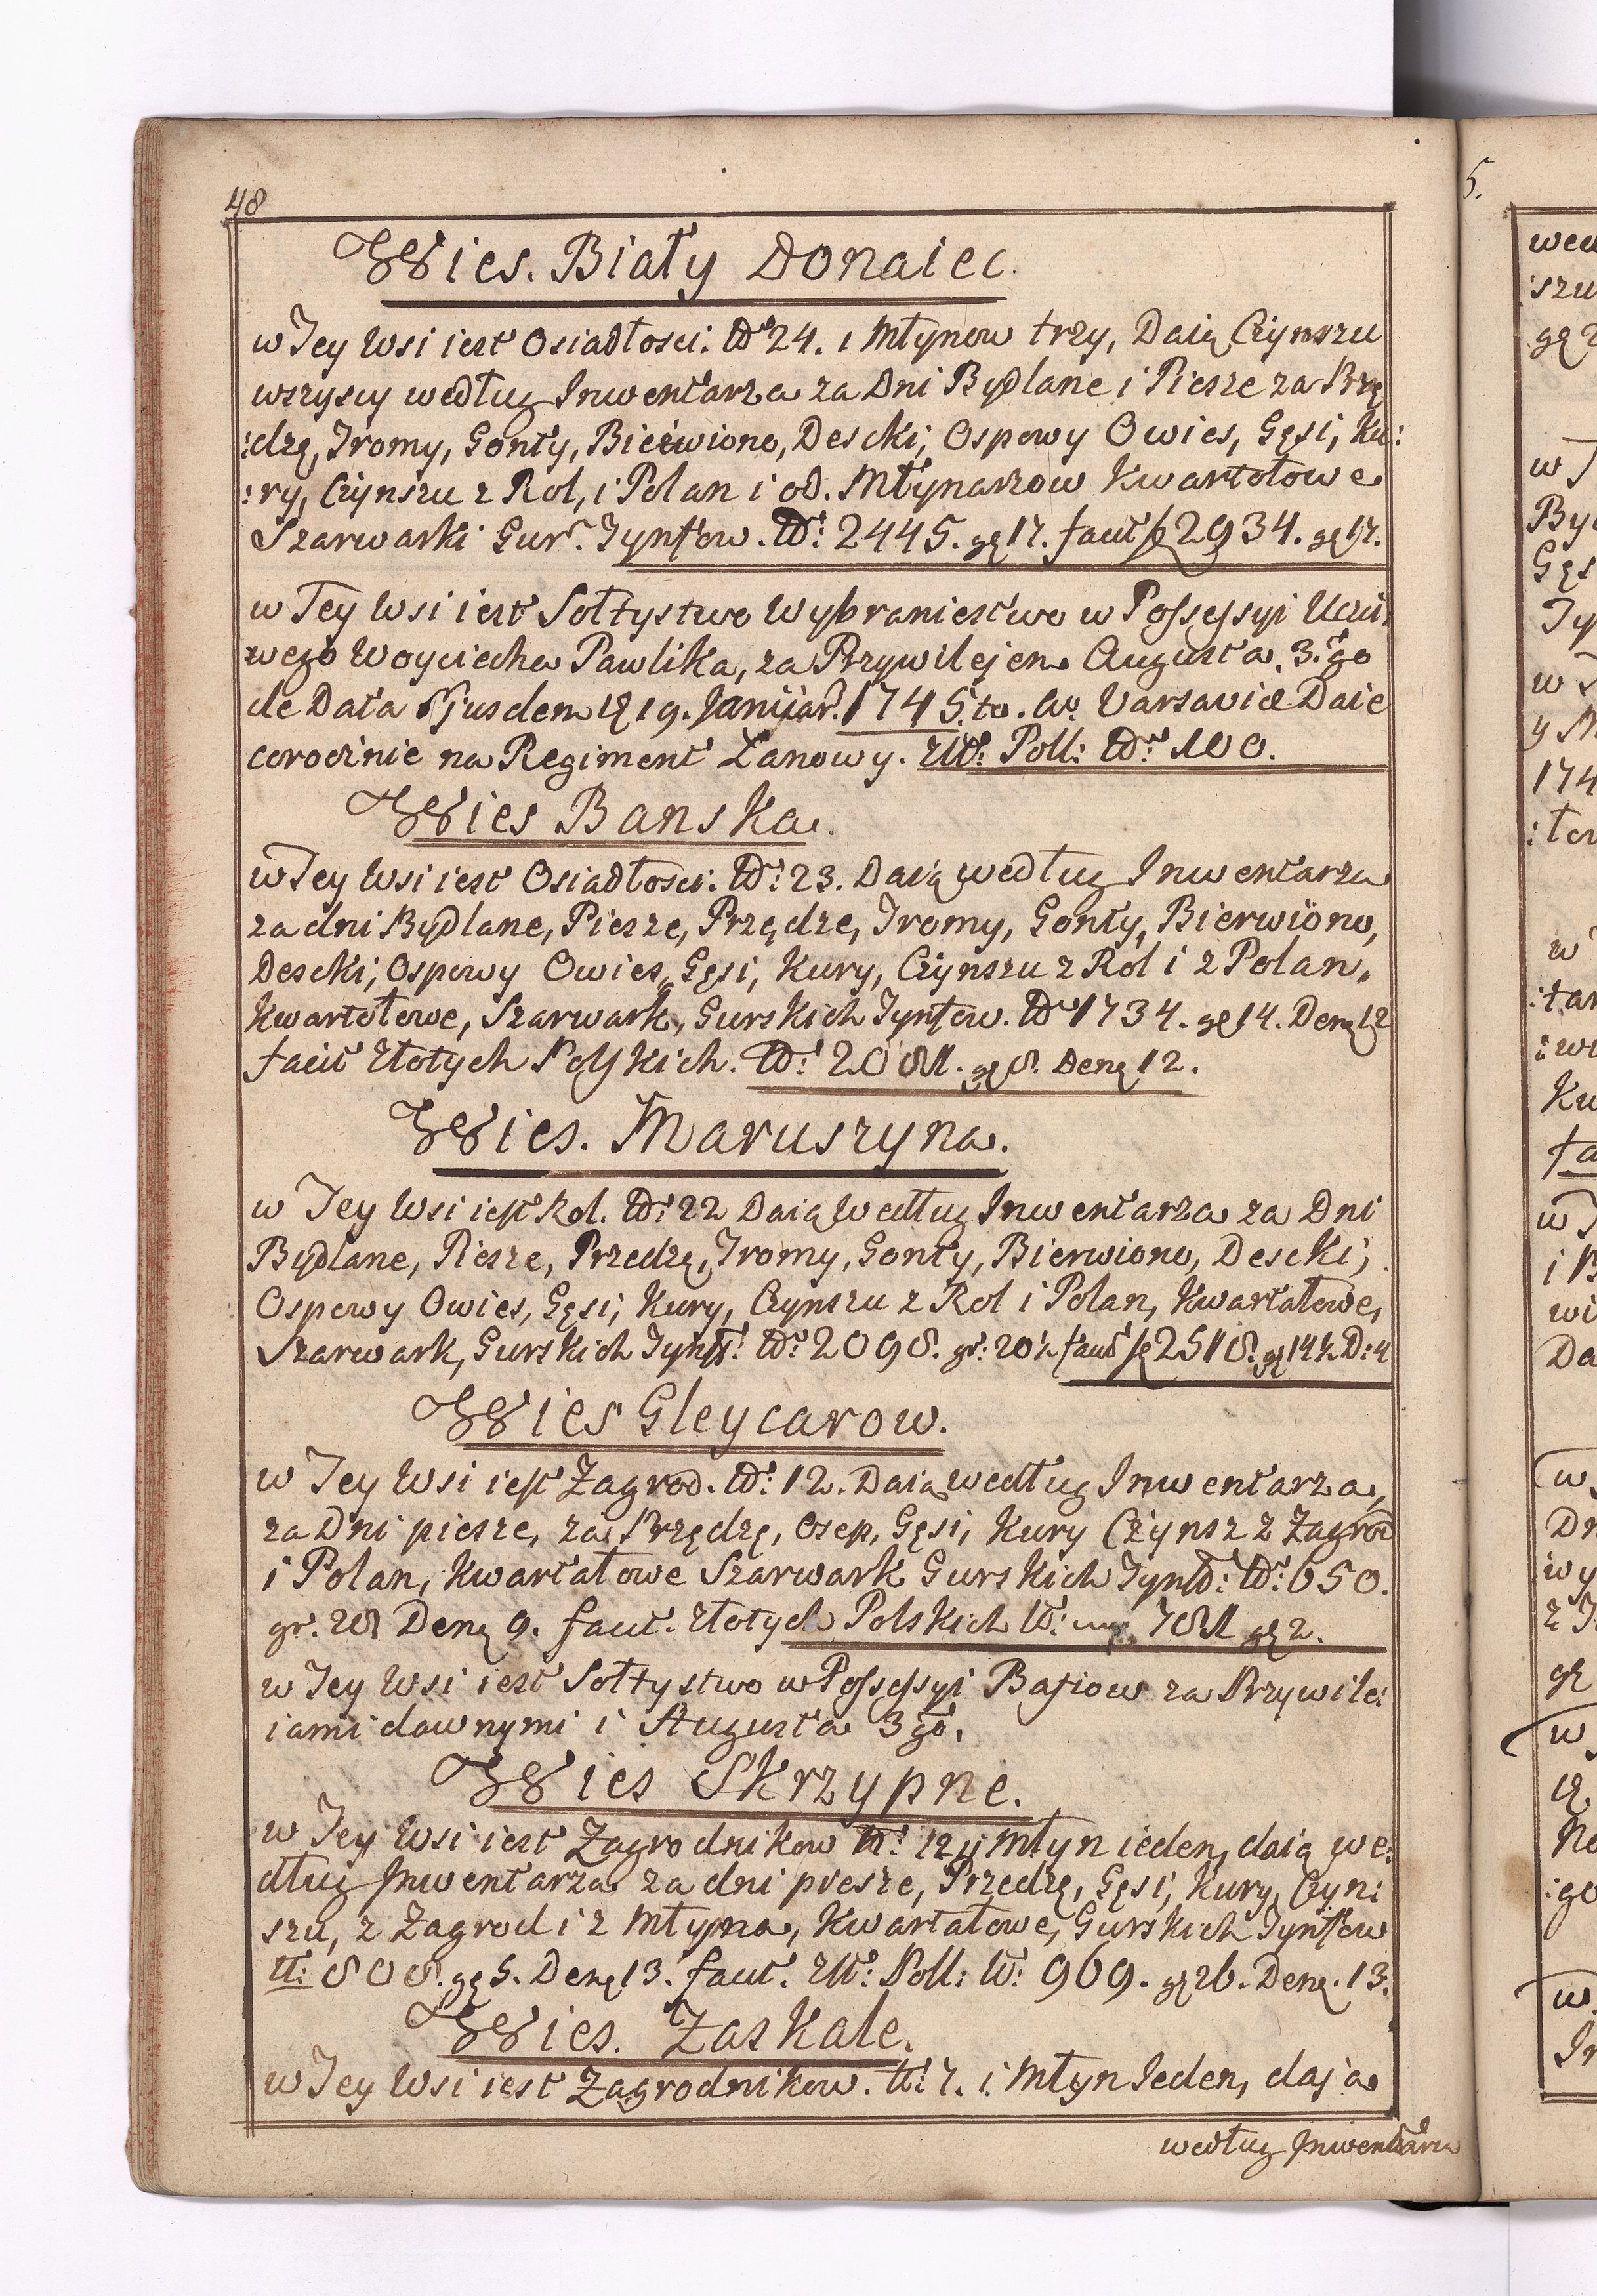 48
Wies. Biały Donaiec.
w Tey Wsi iest Osiadłosci: Nr̊ 24. i Młynow trzy, Daią Czynszu
wszyscy według Inwentarza za Dni Bydlane i Piesze za Przę
:dzę, Tromy, Gonty, Bierwiono, Descki, Ospowy Owies, Gęsi, Ku:
:ry, Czynszu z Rol, i Polan i od. Młynarzow Kwartołowe
Szarwarki Gur. Tynfow. Nr̊: 2445. gr 17. facit fl 2934. gr 17.
w Tey Wsi iest Sołtystwo Wybraniectwo w Possessyi Uczci,
wego Woyciecha Pawlika, za Przywilejem Augusta 3.go
de Data Ejusdem 19. Januar. 1745.to. Varsaviæ Daie
corocznie na Regiment Łanowy. Złł: Poll: Nr̊ 100.
Wies Banska.
w Tey Wsi iest Osiadłosci: Nr̊: 23. Daią według Inwentarza
za dni Bydlane, Piesze, Przędze, Tromy, Gonty, Bierwiono,
Descki, Ospowy Owies, Gęsi, Kury, Czynszu z Rol i z Polan,
Kwartołowe, Szarwark, Gurskich Tynfow. Nr̊ 1734. gr 14. Den 12
facit złotych Polskich. Nr̊: 2081. gr 8. Den 12.
Wies. Maruszyna.
w Tey Wsi iest Rol. Nr̊: 22 Daią Według Inwentarza za Dni
Bydlane, Piesze, Przedzę, Tromy, Gonty, Bierwiono, Descki,
Ospowy Owies, Gęsi, Kury, Czynszu z Rol i Polan, Kwartałowe,
Szarwark, Gurskich Tynff: Nr̊: 2098. gr: 20½ facit fl 2518. gr 14½ D: 4
Wies Gleycarow.
w Tey Wsi iest Zagrod. Nr̊: 12. Daią według Inwentarza,
za Dni piesze, za Przędzę, Osep, Gęsi, Kury Czynsz z Zagrod
i Polan, Kwartałowe Szarwark Gurskich Tynff: Nr̊: 650.
gr. 28 Den 9. facit. złotych Polskich Nr̊: 781 gr 2.
w Tey Wsi iest Sołtystwo w Possessyi Bafiow za Przywile:
iami dawnymi i Augusta 3go.
Wies Skrzypne.
w Tey Wsi iest Zagrodnikow Nr̊: 12 y Młyn ieden, daią we:
dług Inwentarza za dni piesze, Przedzę, Gęsi, Kury, Czyn:
szu, z Zagrod i z Młyna, Kwartałowe, Gurskich Tynffow
Nr̊: 808. gr 5. Den 13. facit. Złł: Poll: Nr̊: 969. gr 26. Den. 13.
Wies. Zaskale.
w Tey Wsi iest Zagrodnikow. Nr̊: 7. i Młyn Ieden, dają
według Inwentarza